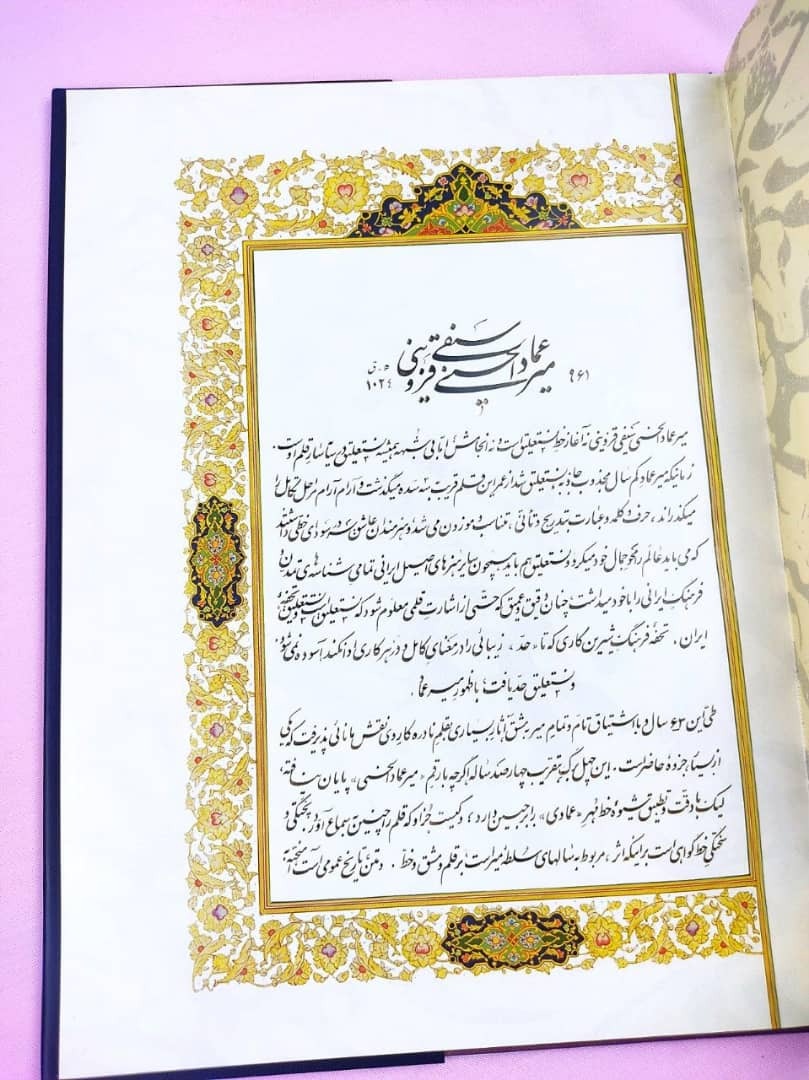 میرعماد الحسنی سیفی قزوینی
۹۶۱
۱۰۲۴ ه‍.ق
میرعماد الحسنی سیفی قزوینی نه آغاز خط نستعلیق است و نه انجامش اما بی شبهه همیشه نستعلیق در سیاق قلم اوست.
زمانیکه میرعماد کم سال مجذوب جاذبه نستعلیق شد از عمر این قلم قریب به سه سده میگذشت و آرام آرام مراحل تکامل را
میگذراند، حرف و کلمه و عبارت بتدریج و تأنی، تناسب و موزون می شد و هنرمندان عاشق سودای خطی داشتند
که می باید عالم را محو جمال خود میکرد و نستعلیق هم باید همچون سایر هنرهای اصیل ایرانی تمامی شناسه های تمدن و
فرهنگ ایرانی را با خود میداشت چنان دقیق و عمیق که حتی از اشارت قلمی معلوم شود که نستعلیق نستعلیق و تحفه
ایران. تحفه فرهنگ شیرین کاری که تا «حد» زیبائی را در معنای کامل و در هر کاری ادا نکند آسوده نمی شود.
و نستعلیق حد یافت با ظهور میرعماد.
طی این ۶۳ سال و با اشتیاق تام و تمام میر به مشق آثار بسیاری بقلم نادره کار وی نقش مانائی پذیرفت که یکی
از بینها جزوه حاضر است. این چهل برگ بتقریب چهارصد ساله اگر چه با رقم «میرعماد الحسنی» پایان نیافته،
لیک با دقت و تطبیق شیوه خط مهر «عمادی» را بر جبین دارد، و کیست جز او که قلم را چنین به سماع آورد پختگی و
سختگی خط گواهی است بر اینکه اثر، مربوط به سالهای سلطه میر است بر قلم و مشق و خط. و متن تاریخ عمومی است